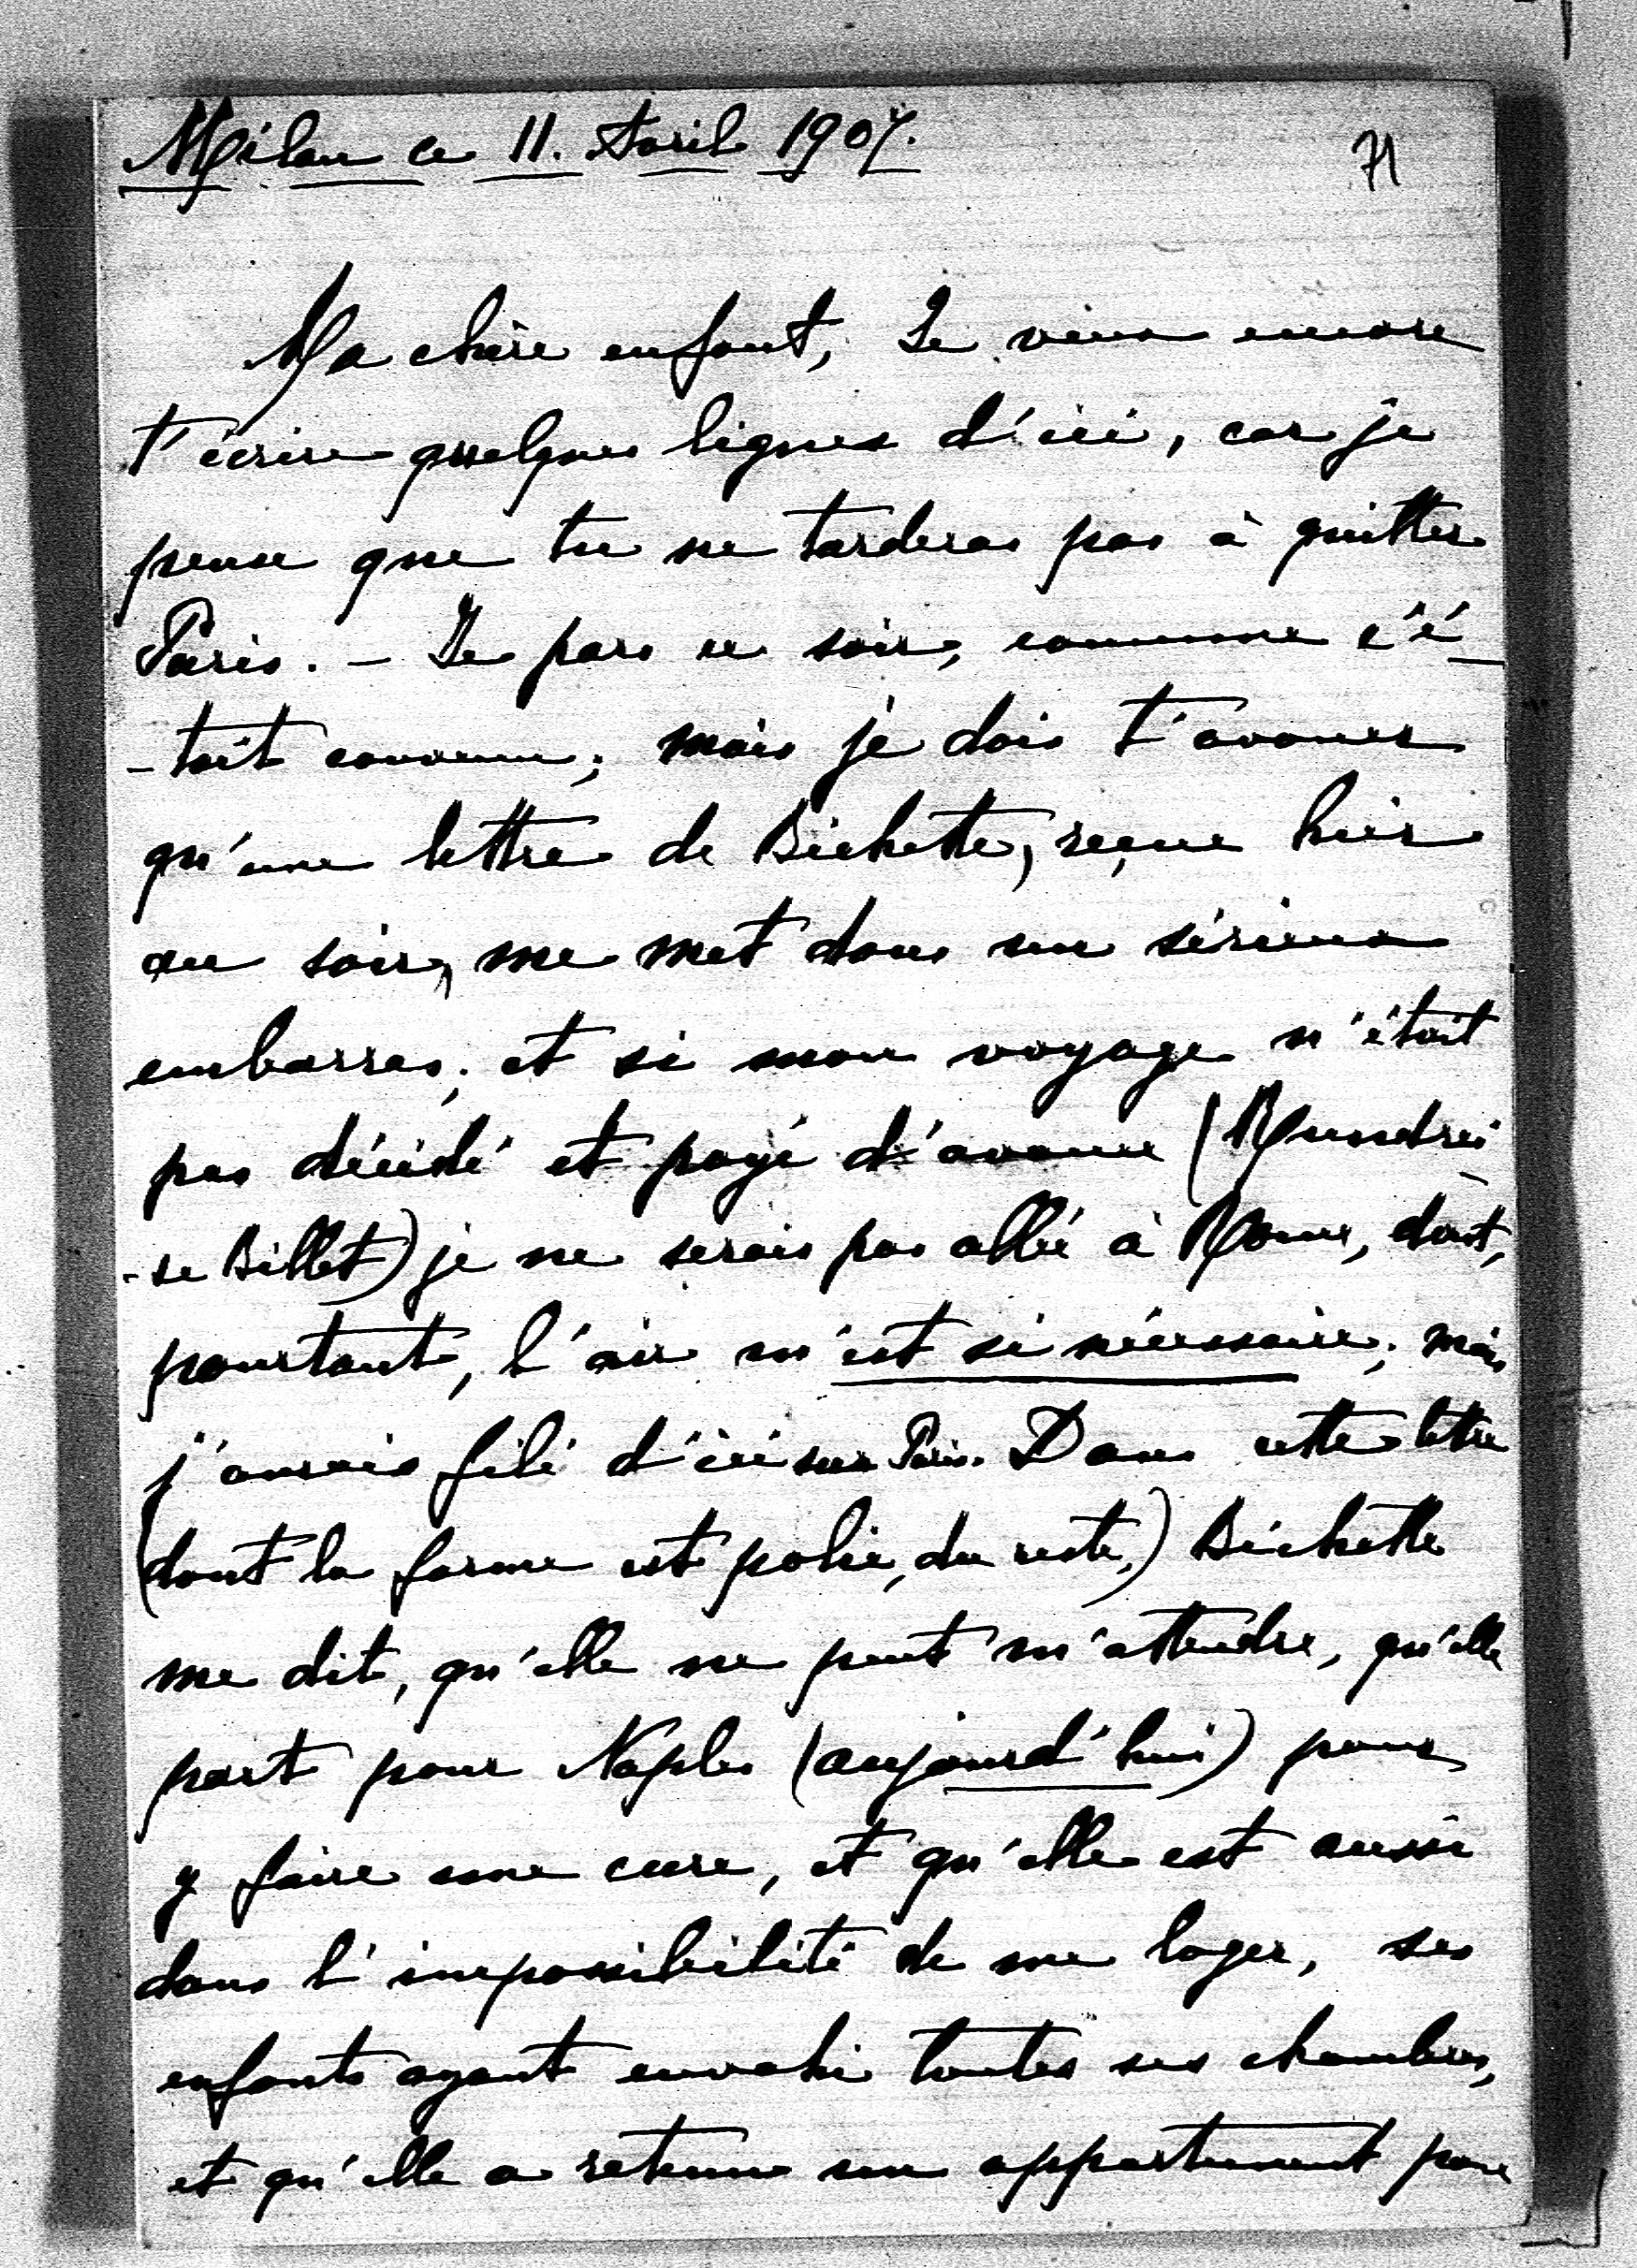 Milan ce 11. Avril 1907.
71
Ma chère enfant, Je viens encore
t'écrire quelques lignes d'ici, car je
pense que tu ne tarderas pas à quitter
Paris. – Je pars ce soir, comme c'é-
-tait convenu; mais je dois t'avouer
qu'une lettre de Bichette, reçue hier
au soir, me met dans un sérieux
embarras; et si mon voyage n'était
pas décidé et payé d'avance (
-se Billet) je ne serais pas allée à Rome, dont,
pourtant, l'air m'est si nécessaire; mais
j'aurais filé d'ici sur Paris. Dans cette lettre
(dont la forme est polie, du reste,) Bichette
me dit, qu'elle ne peut m'attendre, qu'elle
part pour Naples (aujourd'hui) pour
y faire une cure, et qu'elle est aussi
dans l'impossibilité de me loger, ses
enfants ayant envahi toutes ses chambres,
et qu'elle a retenu un appartement pour